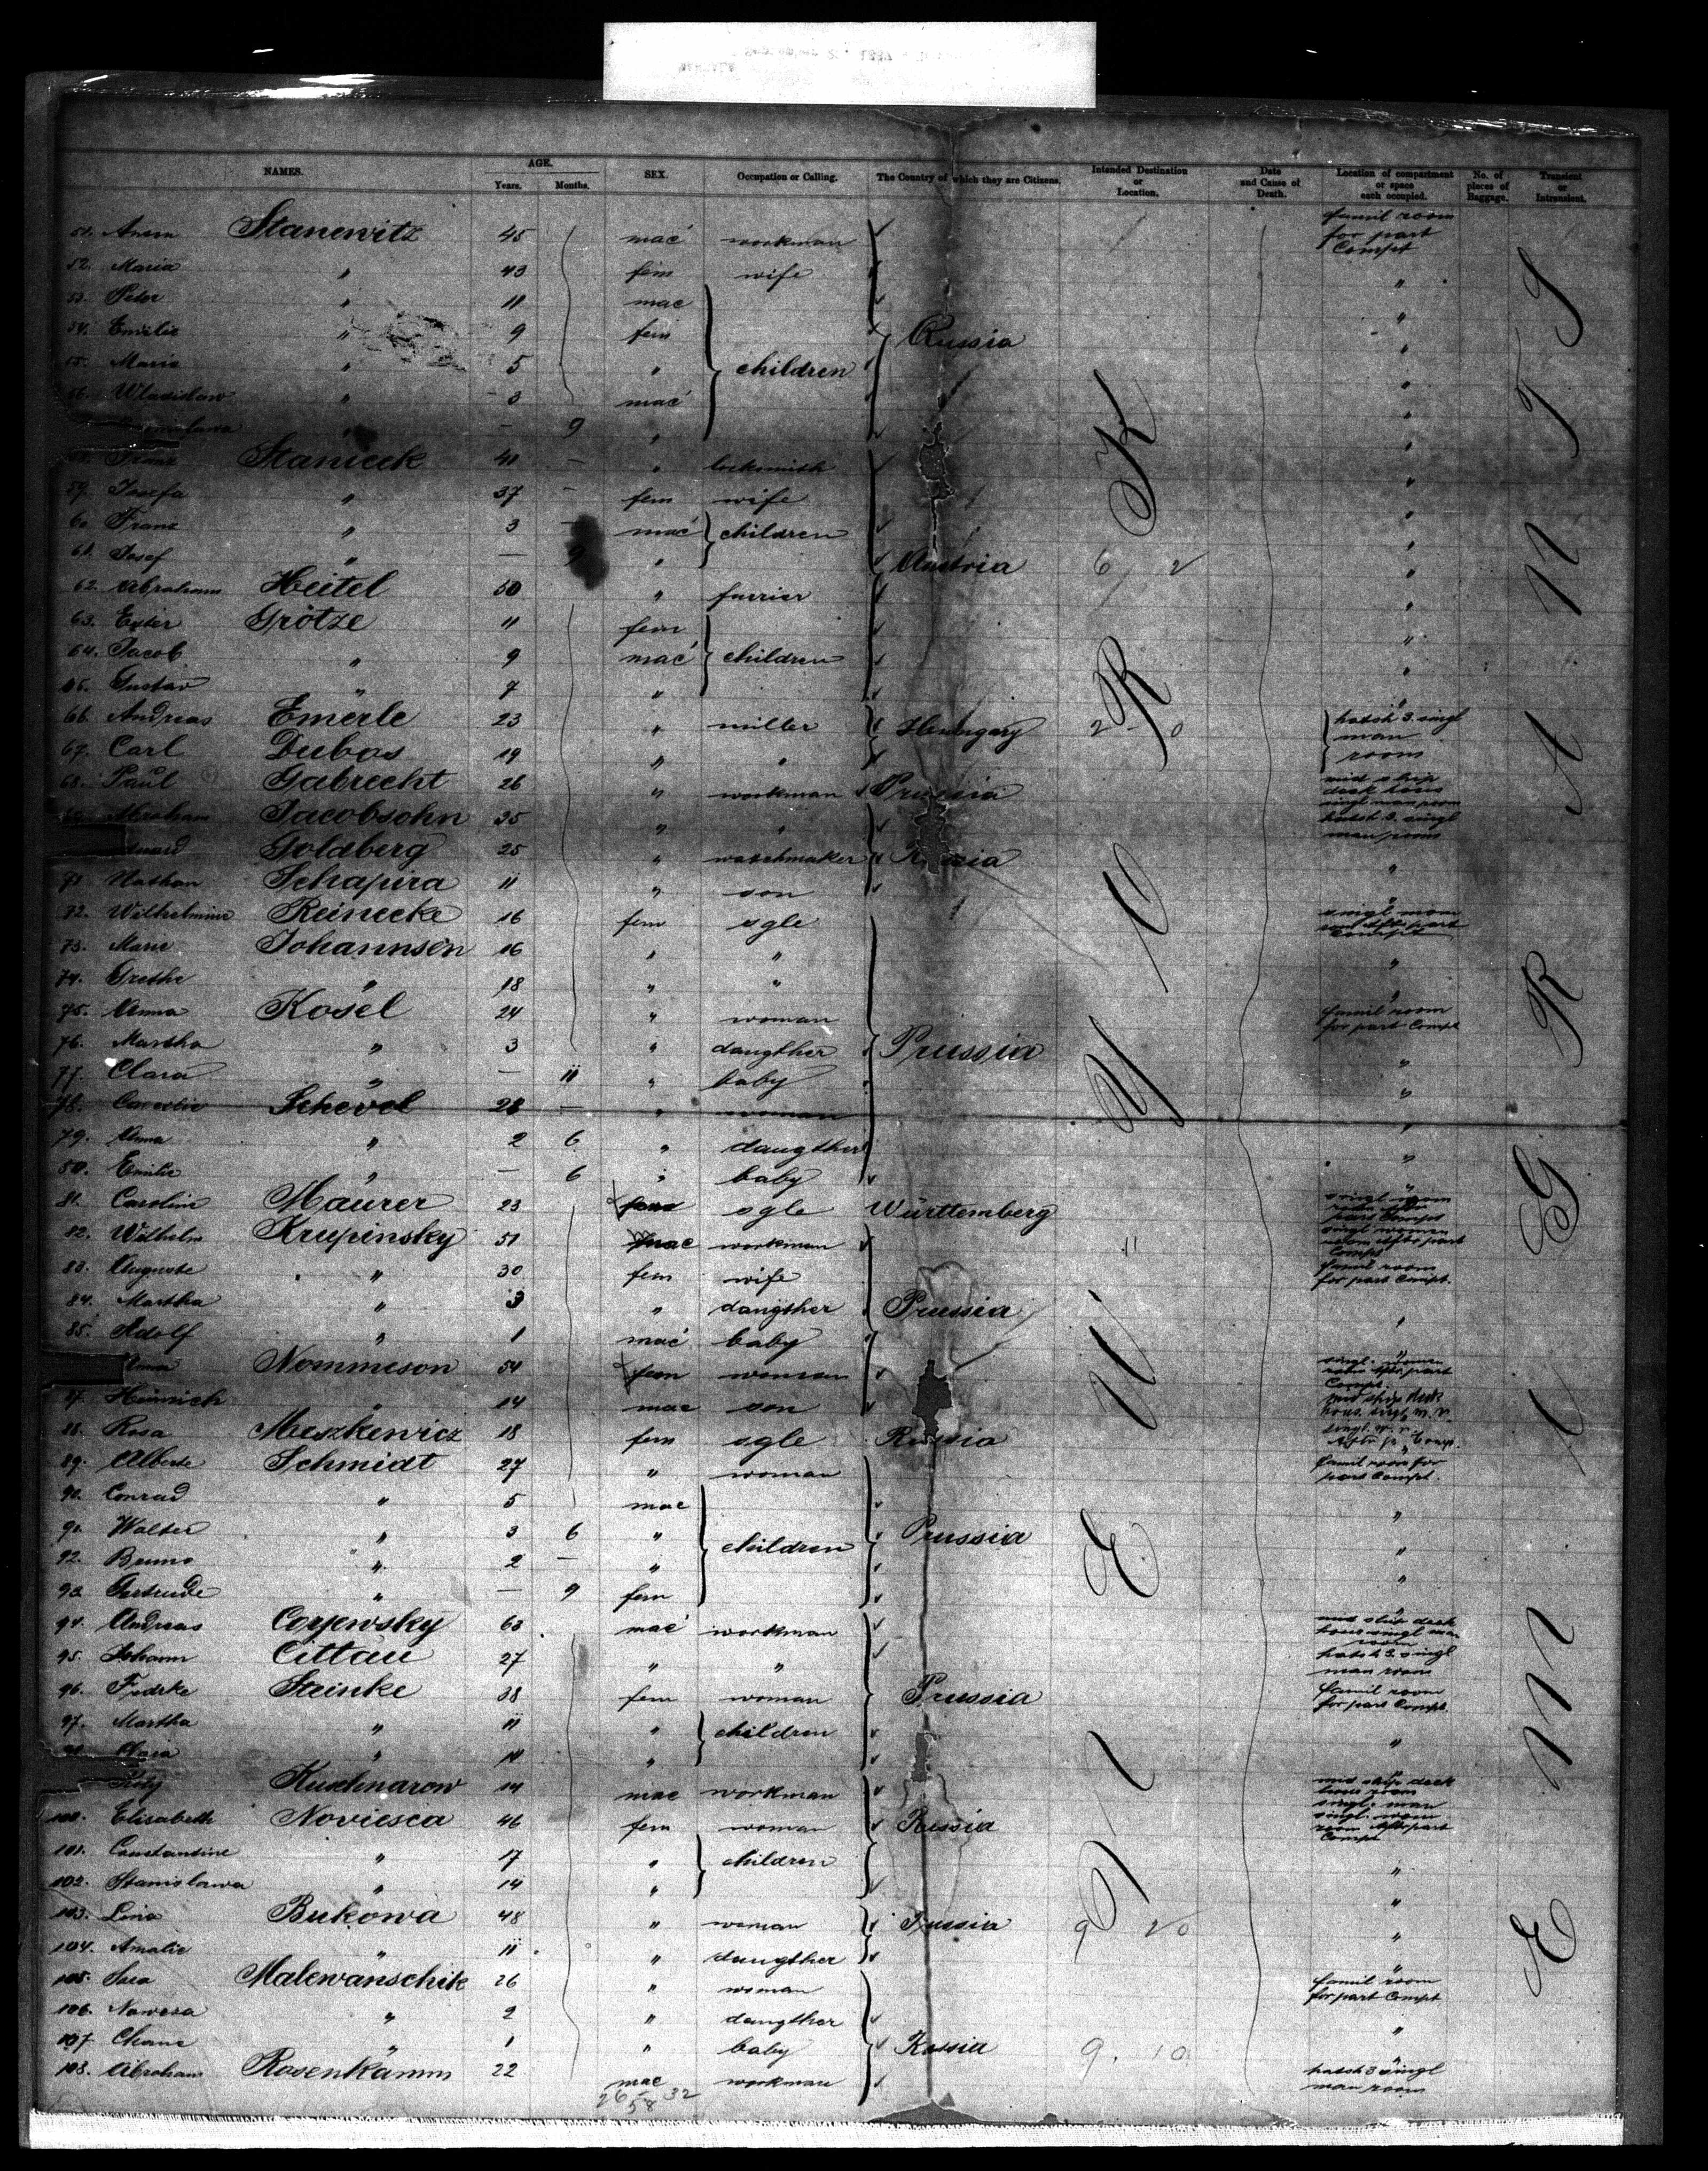 NAMES. AGE. Years. Months. SEX. Occupation or Calling. The Country of which they are Citizens. Intended Destination or Location. Date and Cause of Death. Location of compartment or space each occupied. No. of pieces of Baggage. Transient or Intransient.
51. Stanewitz 45 mac workman famil room for part Compt
52. Maria " 43 fem wife "
53. Peter " 11 mac "
54. Emilie " 9 fem Russia "
55. Maria " 5 " children "
56. Wladislaw " 3 mac "
" — 9 " "
58. Franz Stanicek 41 — " locksmith "
59. Josefa " 37 — fem wife "
60 Franz " 3 — mac children "
61. Josef " — 9 " Austria 6 2 "
62. Abraham Heitel 50 " furrier "
63. Ester Grötze 11 fem "
64. Jacob " 9 mac children "
65. Gustav " 7 " "
66. Andreas Emerle 23 " miller Hungary 2 - 0 hatsh 3. singl man room
67. Carl Dubas 19 " "
68. Paul Gabrecht 26 " workman Prussia mid ship deck hous singl man room
69. Abraham Jacobsohn 35 " " hatsh 3. singl man room
Goldberg 25 " watchmaker Russia "
71. Nathan Schapira 11 " son "
72. Wilhelmine Reinecke 16 fem sgle singl wom room after part Compt
73. Marie Johannsen 16 " " "
74. Grethe " 18 " " "
75. Anna Kosel 24 " woman famil room for part Compt
76. Martha " 3 " daugther Prussia "
77. Clara " — 11 " baby "
78. Schevel 28 — " woman "
79. Anna " 2 6 " daugther "
80. Emilie " — 6 " baby "
81. Carolin Maurer 23 fem sgle Württemberg singl wom room after part Compt
82. Wilhelm Krupinsky 51 mac workman " singl women room after part Compt
83. Auguste " 30 fem wife famil room for part Compt.
84. Martha " 3 " daugther Prussia
85. Adolf " 1 mac baby "
Nommeson 54 fem woman singl. women room after part Compt.
87. Heinrich " 14 mac son mid ship deck hous. singl. m. r.
88. Rosa Meszkewicz 18 fem sgle Russia singl. w. r. after p. Comp.
89. Alberte Schmidt 27 " woman famil room for part Compt.
90. Conrad " 5 mac "
91. Walter " 3 6 " children Prussia "
92. Bruno " 2 — " "
93. Gertrude " — 9 fem "
94. Andreas Corjewsky 63 mac workman mid ship deck hous singl man room
95. Johann Cittau 27 " " hatsh 3. singl man room
96. Fredrke Steinke 38 fem woman Prussia famil room for part Compt.
97. Martha " 11 " children "
" 11 " "
Kuschnarow 14 mac workman mid ship deck hous room singl. man
100. Elisabeth Noviesca 46 fem woman Russia singl. wom room after part Compt
101. Constantine " 17 " children "
102. Stanislawa " 14 " "
103. Lina Bukowa 48 " woman Russia 9 20 "
104. Amalie " 11 " daugther "
105. Malewanschik 26 " woman famil room for part Compt
106. " 2 " daugther "
107 Chane " 1 " baby Russia 9. 10 "
108. Abraham Rosenkamm 22 mac workman hatsh 3 singl man room
26 32
58
NEW YORK
EMIGRANTS